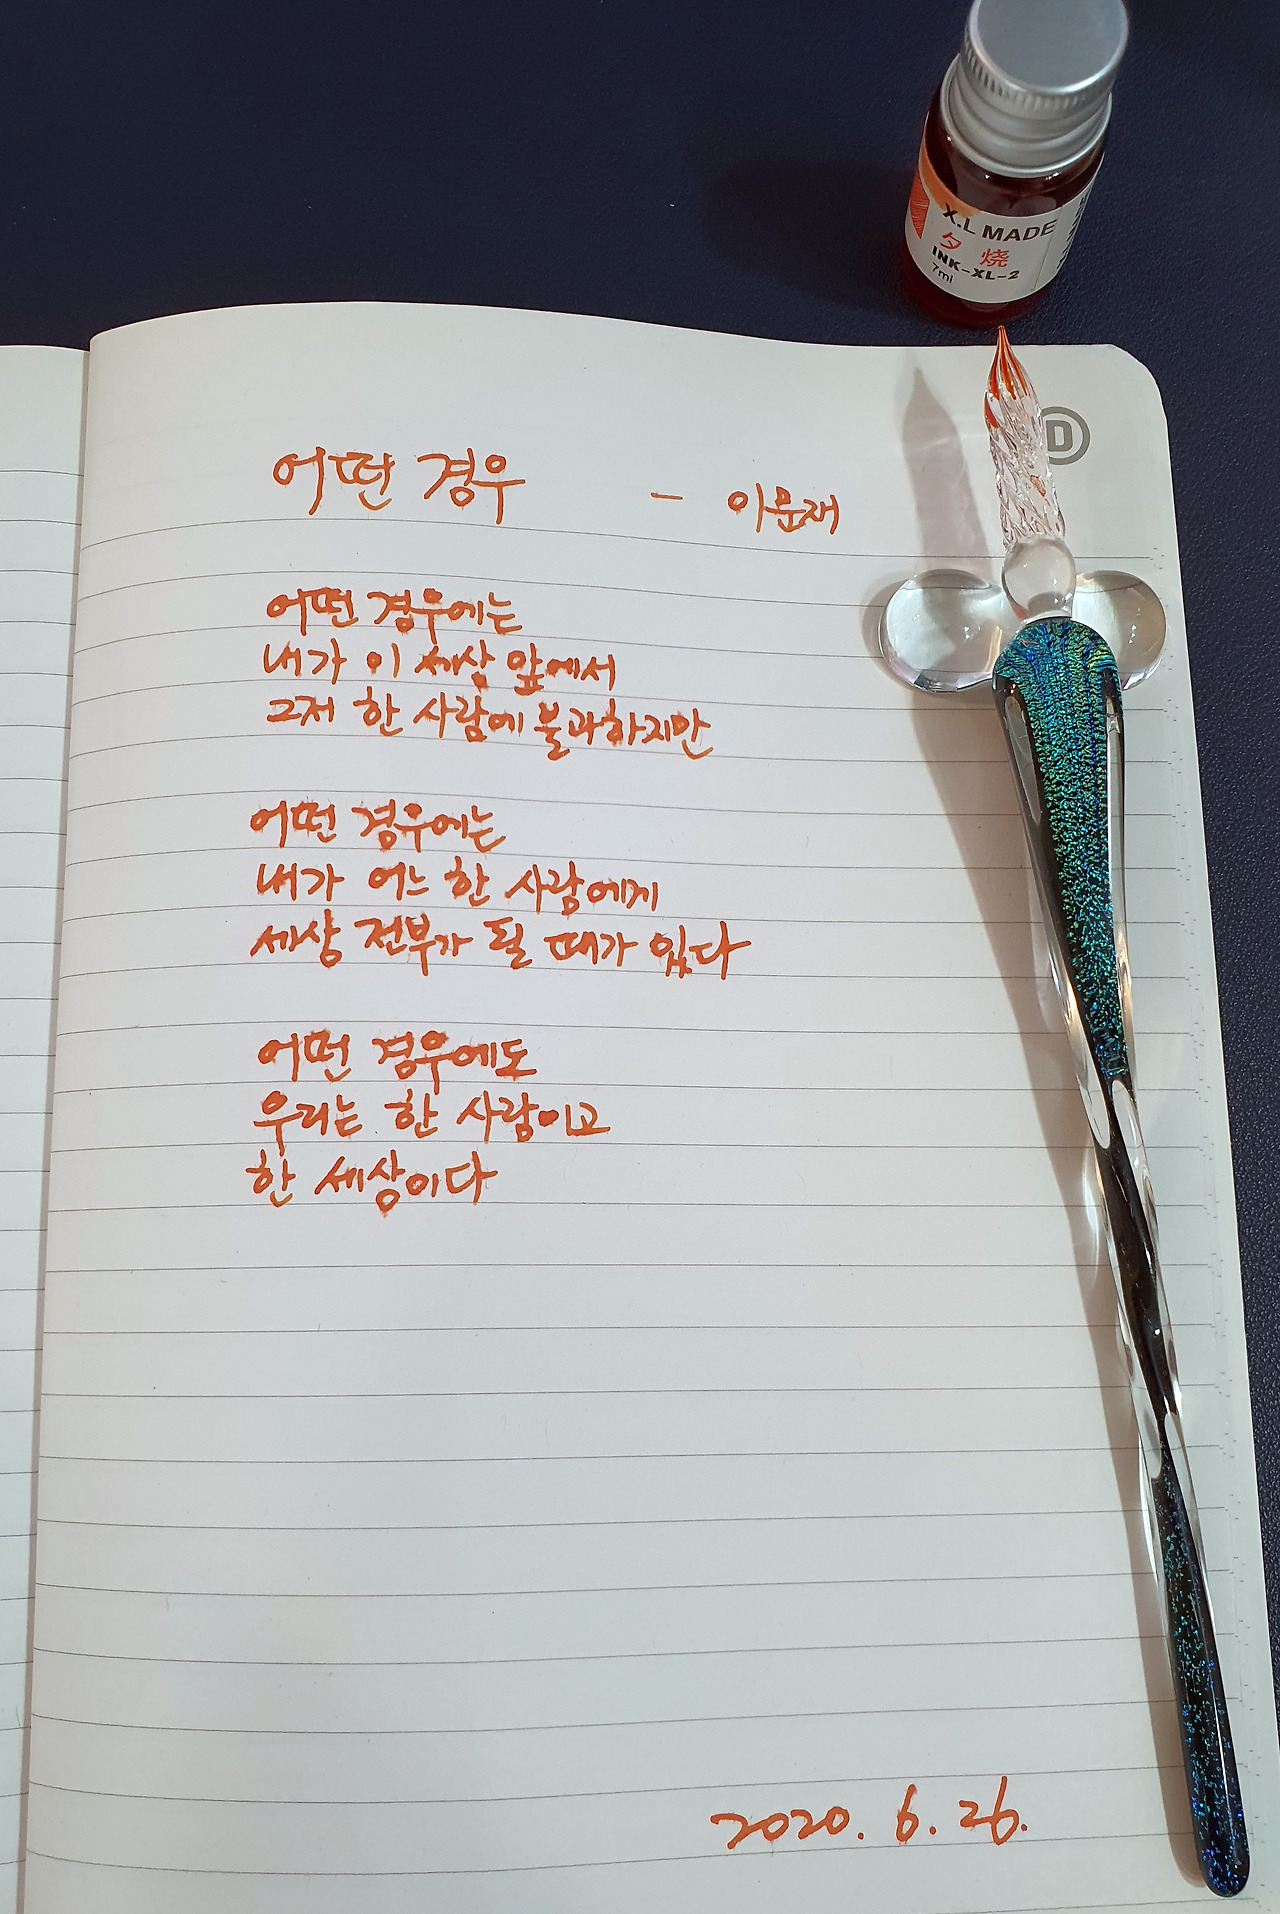 X.L MADE
夕烧
INK-XL-2
7ml
D
어떤 경우 - 이문재
어떤 경우에는
내가 이 세상 앞에서
그저 한 사람에 불과하지만
어떤 경우에는
내가 어느 한 사람에게
세상 전부가 될 때가 있다
어떤 경우에도
우리는 한 사람이고
한 세상이다
2020. 6. 26.